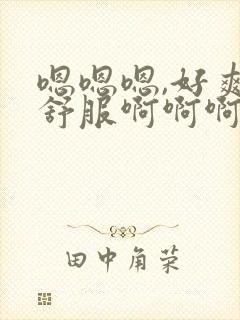 嗯嗯嗯,好爽
舒服啊啊啊
田中角菜